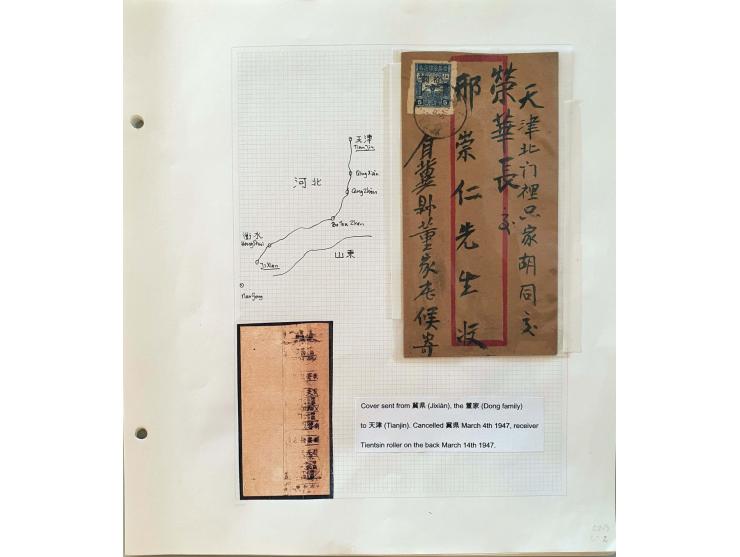 天津
TianJin
河北
QingXian
QingZhen
BoTouZhen
衡水
HengShui
JiXian
山東
NanGong
天津北门裡只家胡同交
榮華長
交
那崇仁先生收
自冀县董家庄候寄
Cover sent from 冀県 (Jixiàn), the 董家 (Dong family)
to 天津 (Tianjin). Cancelled 冀県 March 4th 1947, receiver
Tientsin roller on the back March 14th 1947.